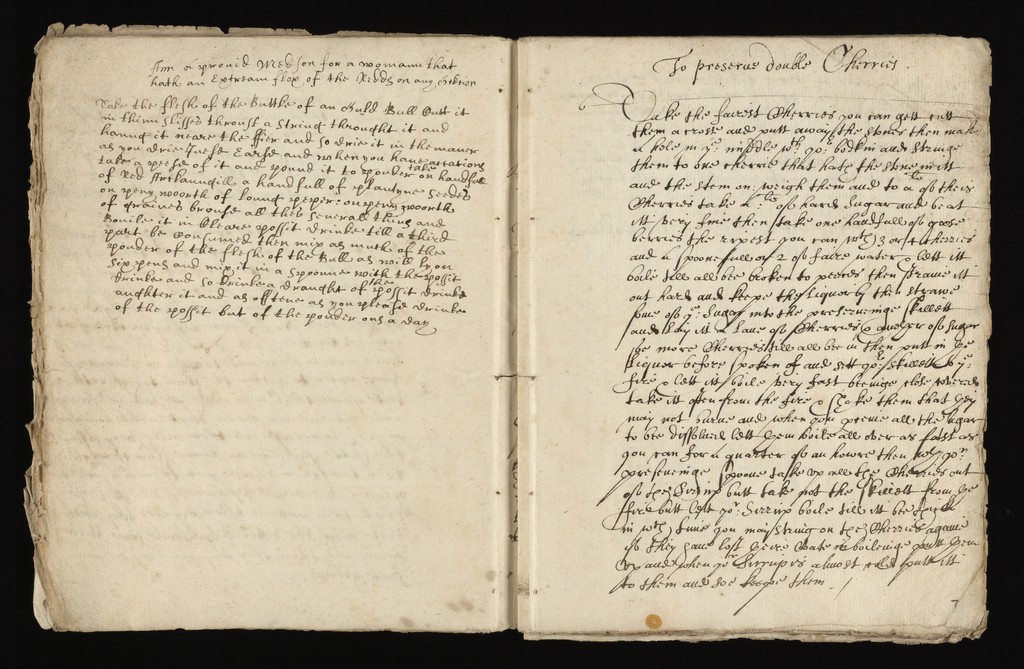 For a proved Medson for a womann that
hath an Extream flox of the Redds on any
Take the flesh of the Buttke of an Ould Bull Cutt it
in thinn slisses thrust a string throught it and
hanng it neare the ffier and so drie it in the maner
as you drie and when you have
take a of it and pound it to ponder take on handfull
of Red a handfull of plantyne seedes
on peny woorth of Loung peper on peny woorth
of graines brouse all thes severall thing and
Bouile it in Cleare possit drinke till a third
part be consumed then mix as much of the
ponder of the flesh of the Bull as will ly on
Six pens and mix it in a spoonne with the possit
drinke and so drinke a draught of the possit drinke
aughter it and as offtene as you please drinke
of the possit but of the ponder ons a day
To preserue double Cherries.
6
Take the fairest Cherries you can gett cutt
them a crosse and putt away the stones then make
a hole in ye middle wth yor bodkin and stringe
them to one cherrie that hath the stone in itt
and the stem on: weigh them and to a li of theis
Cherries take a li of hard Sugar and beat
itt very fine then take one handfull of goose
berries the rypest you can wth 3 or 4 Cherries
and a spoonefull or 2 of faire water & lett itt
boile till all bee broken to peeces then straine itt
out hard and keepe the liquor by then strawe
some of ye Sugar into the preserveinge skillett
and lay itt a lane of Cherries & another of Sugar
soe more Cherries till all bee in then putt in the
liquor before spoken of and sett yor skillett by ye
fire & lett itt boile very fast beeinge close covered
take itt often from the fire & shake them that they
may not burne and when you preceive all the sugar
to bee dissolued lett them boile all over as fast as
you can for a quarter of an howre then wth yor
preserveinge spoone take up all the Cherries out
of the Sirrup butt take not the skillett from the
fire butt lett yor Sirrup boile till itt bee thick
in wch time you may string on the Cherries againe
if they have lost theire in boileinge putt them
up and when yor Sirrup is almost cold putt itt
to them and soe keepe them.
7